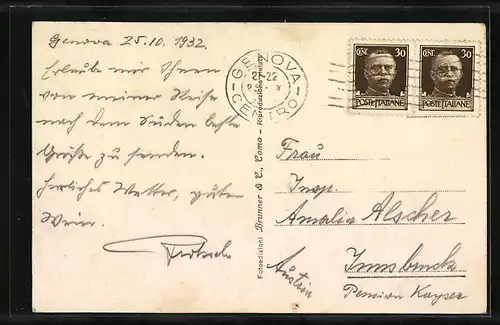 Genova 25.10.1932
Erlaube mir Ihnen
von meiner Reise
nach dem Süden beste
Grüße zu senden.
Herrliches Wetter, guter
Wein.
GENOVA
CENTRO
21-22
Fotoedizioni Brunner & C., Como - Riproduzione vietata
CENT. 30
POSTE ITALIANE
CENT. 30
POSTE ITALIANE
Frau
Insp.
Amalia Alscher
Innsbruck
Pension Kayser
Austria